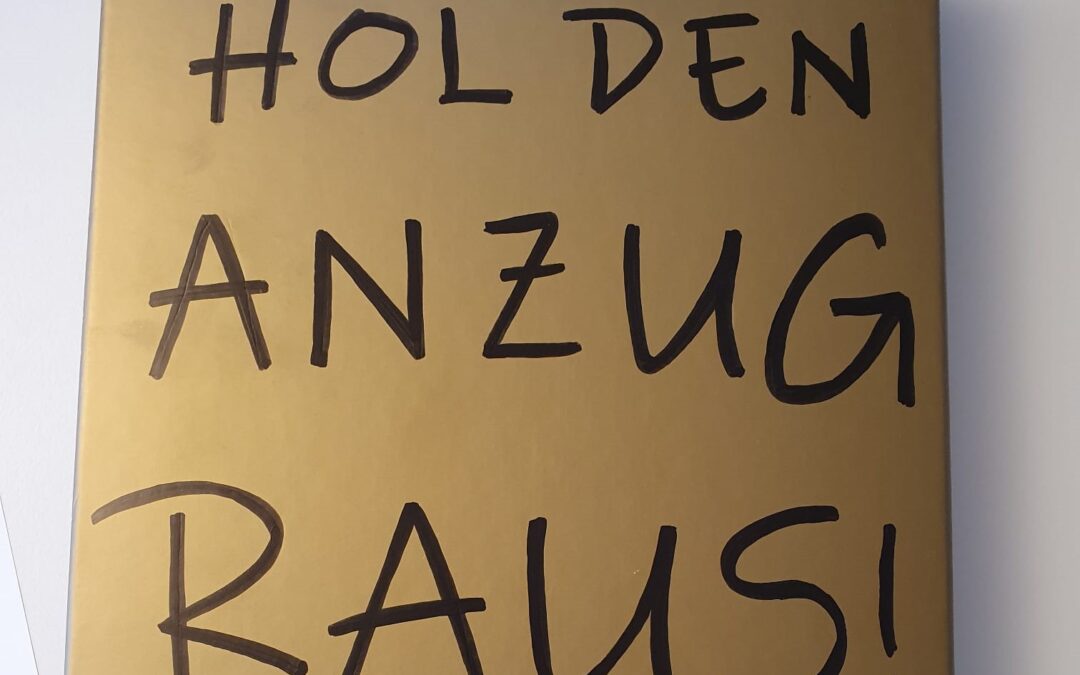 HOL DEN
ANZUG
RAUS!